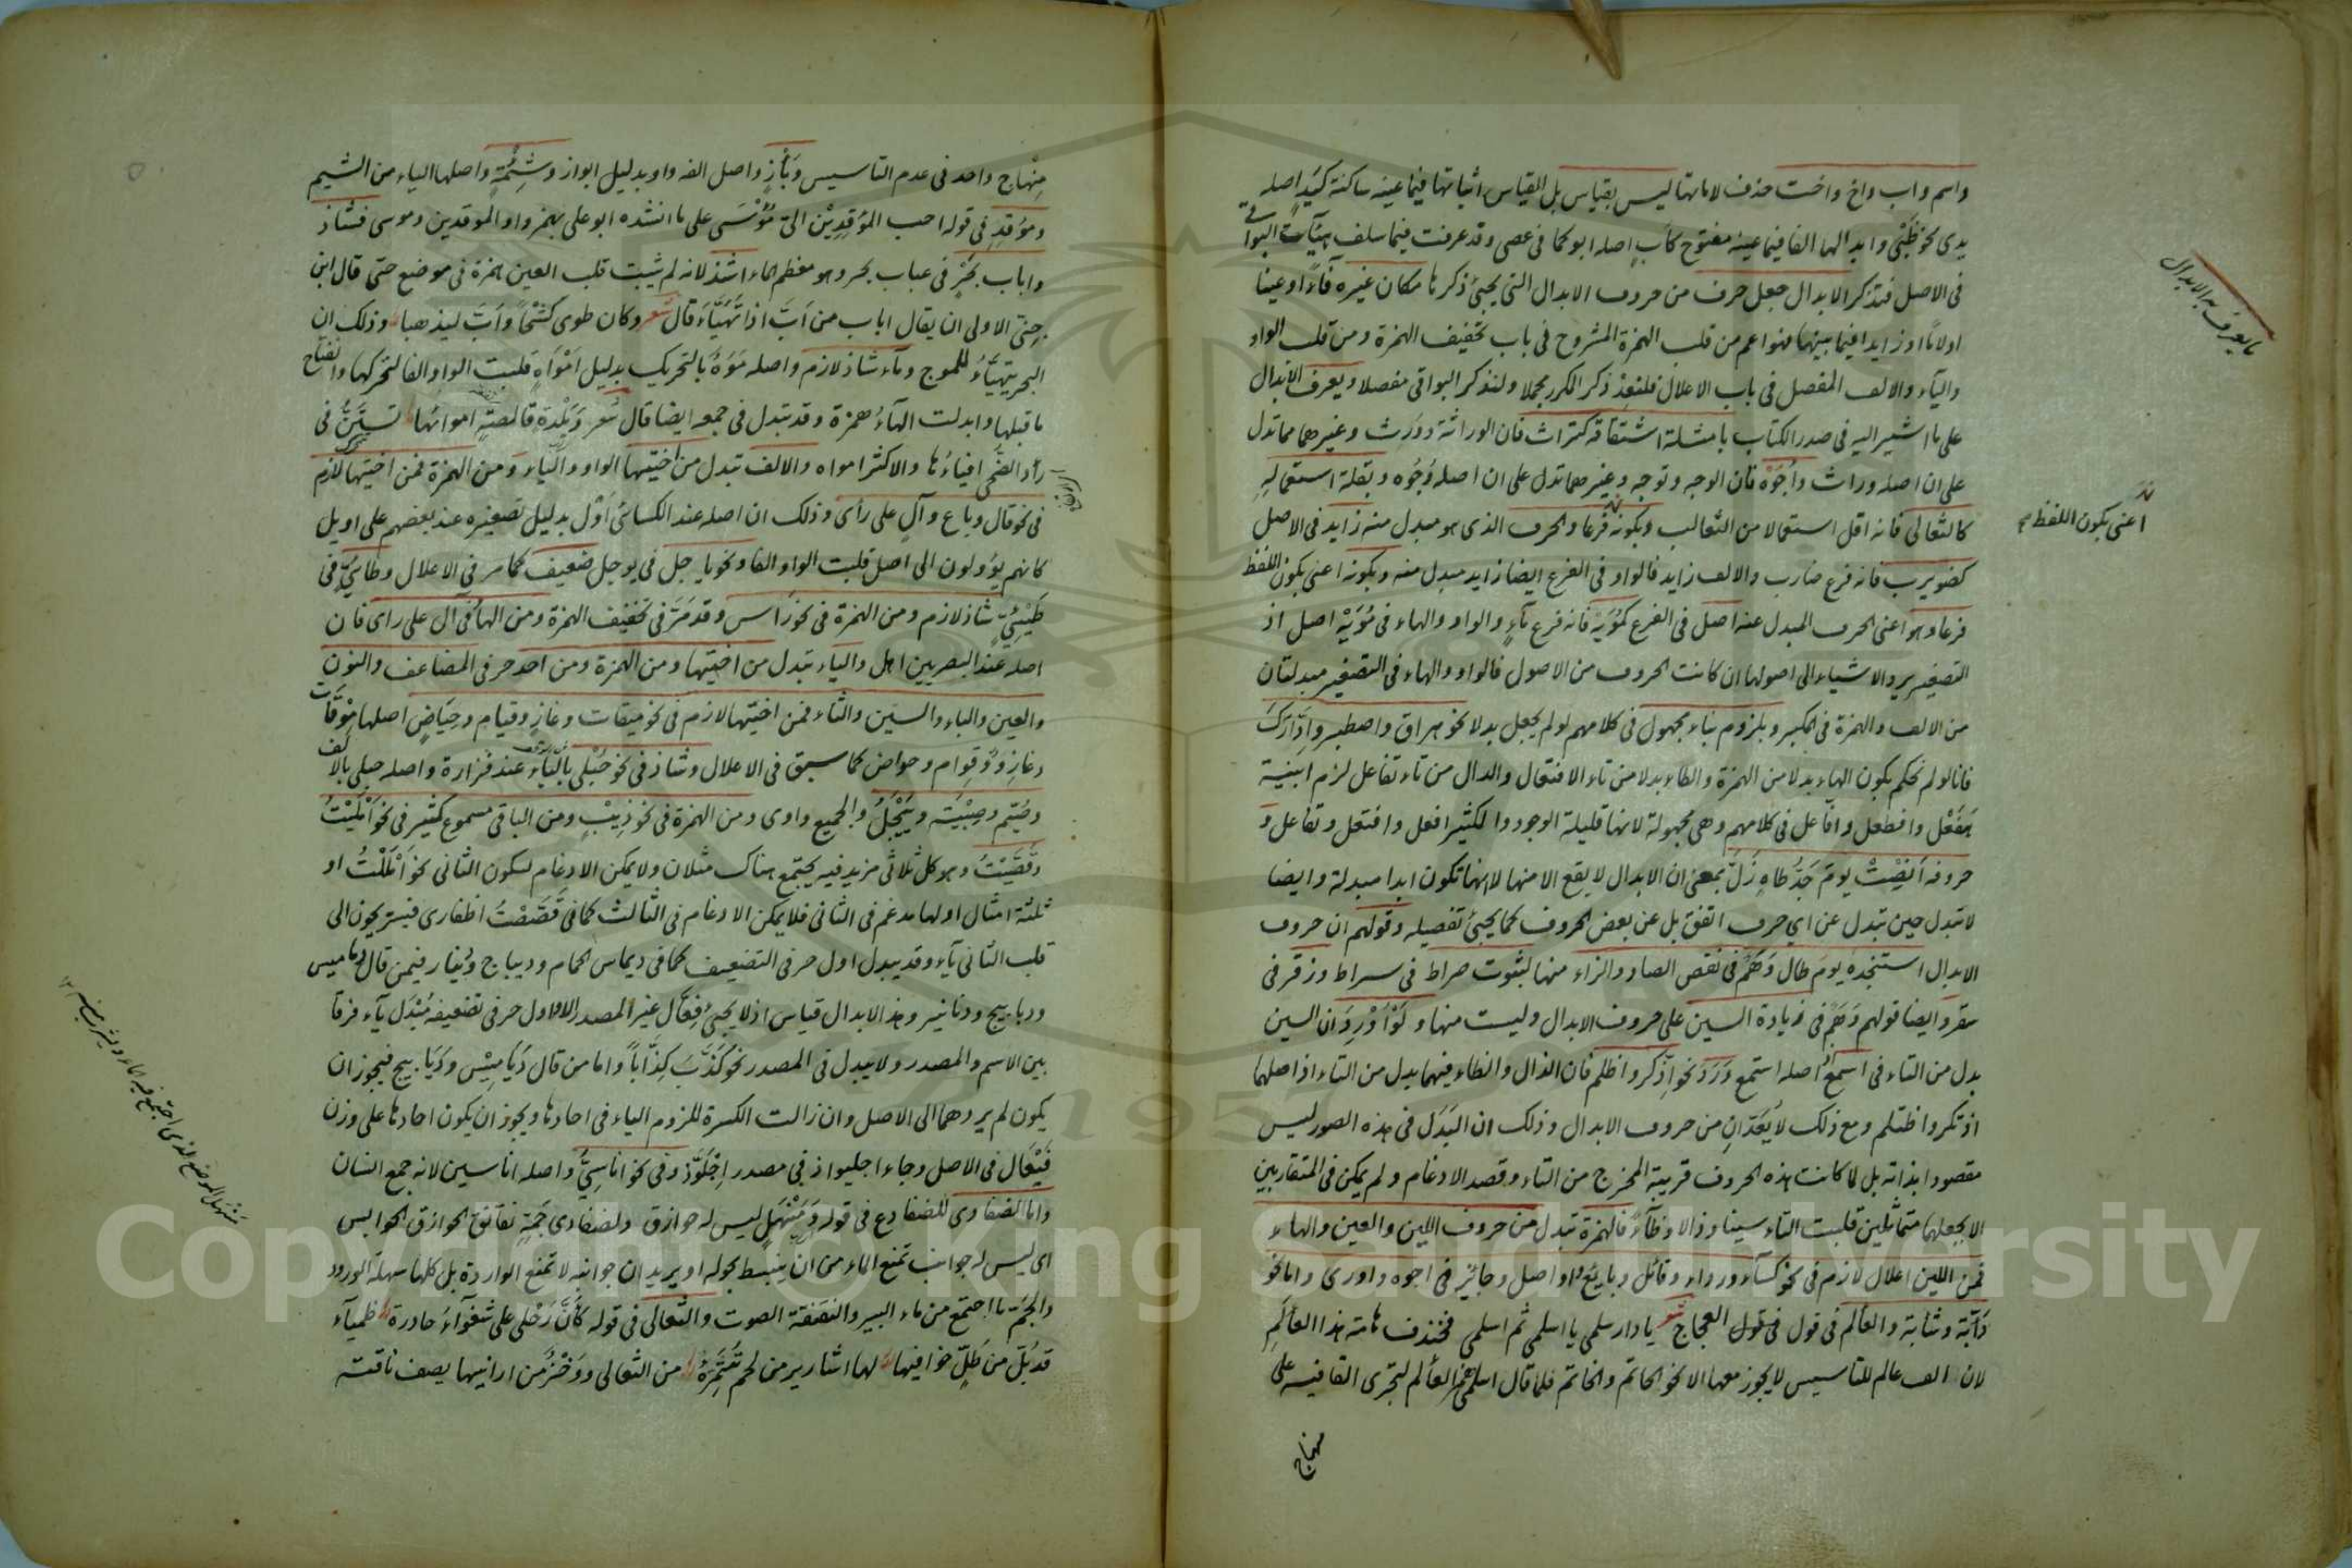 واسم واب واخ واخت حذف لاماتها ليس بقياس بل القياس اثباتها فيما عينه ساكنة كيد اصله
يدى كظبى وابدالها الفا فيما عينه مفتوح كاب اصله ابو كما فى عصى وقد عرفت فيما سلف هيآت البواقى
فى الاصل فتذكر الابدال جعل حرف من حروف الابدال التى يجئ ذكرها مكان غيره فآء او عينا
او لاما او زايدا فيما بينهما فهو اعم من قلب الهمزة المشروح فى باب تخفيف الهمزة ومن قلب الواو
واليآء والالف المفصل فى باب الاعلال فلنعد ذكر المكرر مجملا ولنذكر البواقى مفصلا ويعرف الابدال
على ما اشير اليه فى صدر الكتاب بامثلة اشتقاقه كتراث فان الوراثة وورث وغيرهما مما تدل
على ان اصله وراث واجوه فان الوجه وتوجه وغيرهما تدل على ان اصله وجوه وبقلة استعماله
كالثعالى فانه اقل استعمالا من الثعالب وبكونه فرعا والحرف الذى هو مبدل منه زايد فى الاصل
كضويرب فانه فرع ضارب والالف زايد فالواو فى الفرع ايضا زايد مبدل منه وبكونه اعنى بكون اللفظ
فرعا وهو اعنى الحرف المبدل عنه اصل فى الفرع كمويه فانه فرع مآء والواو والهاء فى مويه اصل اذ
التصغير يرد الاشياء الى اصولها ان كانت الحروف من الاصول فالواو والهاء فى التصغير مبدلتان
من الالف والهمزة فى المكبر وبلزوم بناء مجهول فى كلامهم لو لم يجعل بدلا نحو هراق واصطبر وادارك
فانا لو لم نحكم بكون الهاء بدلا من الهمزة والطاء بدلا من تاء الافتعال والدال من تاء تفاعل لزم ابنية
هفعل وافطعل وافاعل فى كلامهم وهى مجهولة لانها قليلة الوجود والكثير افعل وافتعل وتفاعل و
حروفه انصت يوم جد طاه زل بمعنى ان الابدال لا يقع الا منها لا انها تكون ابدا مبدلة وايضا
لا تبدل حين تبدل عن اي حرف اتفق بل عن بعض الحروف كما يجئ تفصيله وقولهم ان حروف
الابدال استنجده يوم طال وهم فى نقص الصاد والزاء منها لثبوت صراط فى سراط وزقر فى
سقر وايضا قولهم وهم فى زيادة السين على حروف الابدال وليست منها ولو اورد ان السين
بدل من التاء فى اسمع اصله استمع ورد نحو اذكر واظلم فان الذال والظاء فيهما بدل من التاء اذ اصلهما
اذتكر واظتلم ومع ذلك لا يعدان من حروف الابدال وذلك ان البدل فى هذه الصور ليس
مقصودا بذاته بل لما كانت هذه الحروف قريبة المخرج من التاء وقصد الادغام ولم يمكن فى المتقاربين
الا بجعلهما متماثلين قلبت التاء سينا وذالا وظآء فالهمزة تبدل من حروف اللين والعين والهاء
فمن اللين اعلال لازم فى نحو كسآء ورداء وقائل وبايع واواصل وجائز فى اجوه واورى واما نحو
دآبة وشابة والعألم فى قول العجاج شعر يا دار سلمى يا اسلمى ثم اسلمى فخندف هامة هذا العألم
لان الف عالم للتاسيس لا يجوز معها الا نحو الحاتم والخاتم فلما قال اسلمى همز العألم لتجرى القافية على
منهاج
ما يعرف به الابدال
اعنى بكون اللفظ
منهاج واحد فى عدم التاسيس وبأز واصل الفه واو بدليل ابواز وشئمة واصلها الياء من الشيم
ومؤقد فى قوله احب المؤقدين الى مؤسى على ما انشده ابو على بهمز واو الموقدين وموسى فشاذ
واباب بحر فى عباب بحر وهو معظم الماء اشذ لانه لم يثبت قلب العين همزة فى موضع حتى قال ابن
جنى الاولى ان يقال اباب من اب اذا تهيأ قال شعر وكان طوى كشحا واب ليذهبا وذلك ان
البحر يتهيأ للموج ومآء شاذ لازم واصله موه بالتحريك بدليل امواه قلبت الواو الفا لتحركها وانفتاح
ما قبلها وابدلت الهآء همزة وقد تبدل فى جمعه ايضا قال شعر وبلدة قالصة امواؤها تستن فى
رأد الضحى افياؤها والاكثر امواه والالف تبدل من اختيها الواو والياء ومن الهمزة فمن اختيها لازم
فى نحو قال وباع وآل على رأى وذلك ان اصله عند الكسائى اول بدليل تصغيره عند بعضهم على اويل
كانهم يؤولون الى اصل قلبت الواو الفا ونحو ياجل فى يوجل ضعيف كما مر فى الاعلال وطائى فى
طيئى شاذ لازم ومن الهمزة فى نحو راس وقد مر فى تخفيف الهمزة ومن الهآ فى آل على راى فان
اصله عند البصريين اهل والياء تبدل من اختيها ومن الهمزة ومن احد حرفى المضاعف والنون
والعين والباء والسين والثاء فمن اختيها لازم فى نحو ميقات وغاز وقيام وحياض اصلها موقات
وغازو وقوام وحواض كما سبق فى الاعلال وشاذ فى نحو حبلى بالياء عند فزارة واصله حبلى بالالف
وصيم وصبية وييجل والجميع واوى ومن الهمزة فى نحو ذيب ومن الباقى مسموع كثير فى نحو امليت
وقصيت وهو كل ثلاثى مزيد فيه يجتمع هناك مثلان ولا يمكن الادغام لسكون الثانى نحو امللت او
ثلثة امثال اولها مدغم فى الثانى فلا يمكن الادغام فى الثالث كما فى قصصت اظفارى فيستريحون الى
قلب الثانى يآء وقد يبدل اول حرفى التضعيف كما فى ديماس الحمام وديباج ودينار فيمن قال دماميس
ودبابيج ودنانير وهذا الابدال قياس اذ لا يجئ فعال غير المصدر الا واول حرفى تضعيفه مبدل يآء فرقا
بين الاسم والمصدر ولا يبدل فى المصدر نحو كذب كذابا واما من قال دياميس وديابيج فيجوز ان
يكون لم يردهما الى الاصل وان زالت الكسرة للزوم الياء فى احادها ويجوز ان يكون احادها على وزن
فيعال فى الاصل وجاء اجليواذ فى مصدر اجلوذ وفى نحو اناسى واصله اناسين لانه جمع انسان
واما الضفادى للضفادع فى قوله ومنهل ليس له حوازق ولضفادى جمه نقانق الحوازق الحوابس
اى ليس له جوانب تمنع الماء من ان ينبسط بحوله او يريد ان جوانبه لا تمنع الواردة بل كلها سهلة الورود
والجم ما اجتمع من ماء البير والنقنقة الصوت والثعالى فى قوله كأن رحلى على شغوآء حادرة ظميآء
قد بل من طل خوافيها لها اشارير من لحم تتمره من الثعالى ووخز من ارانيها يصف ناقته